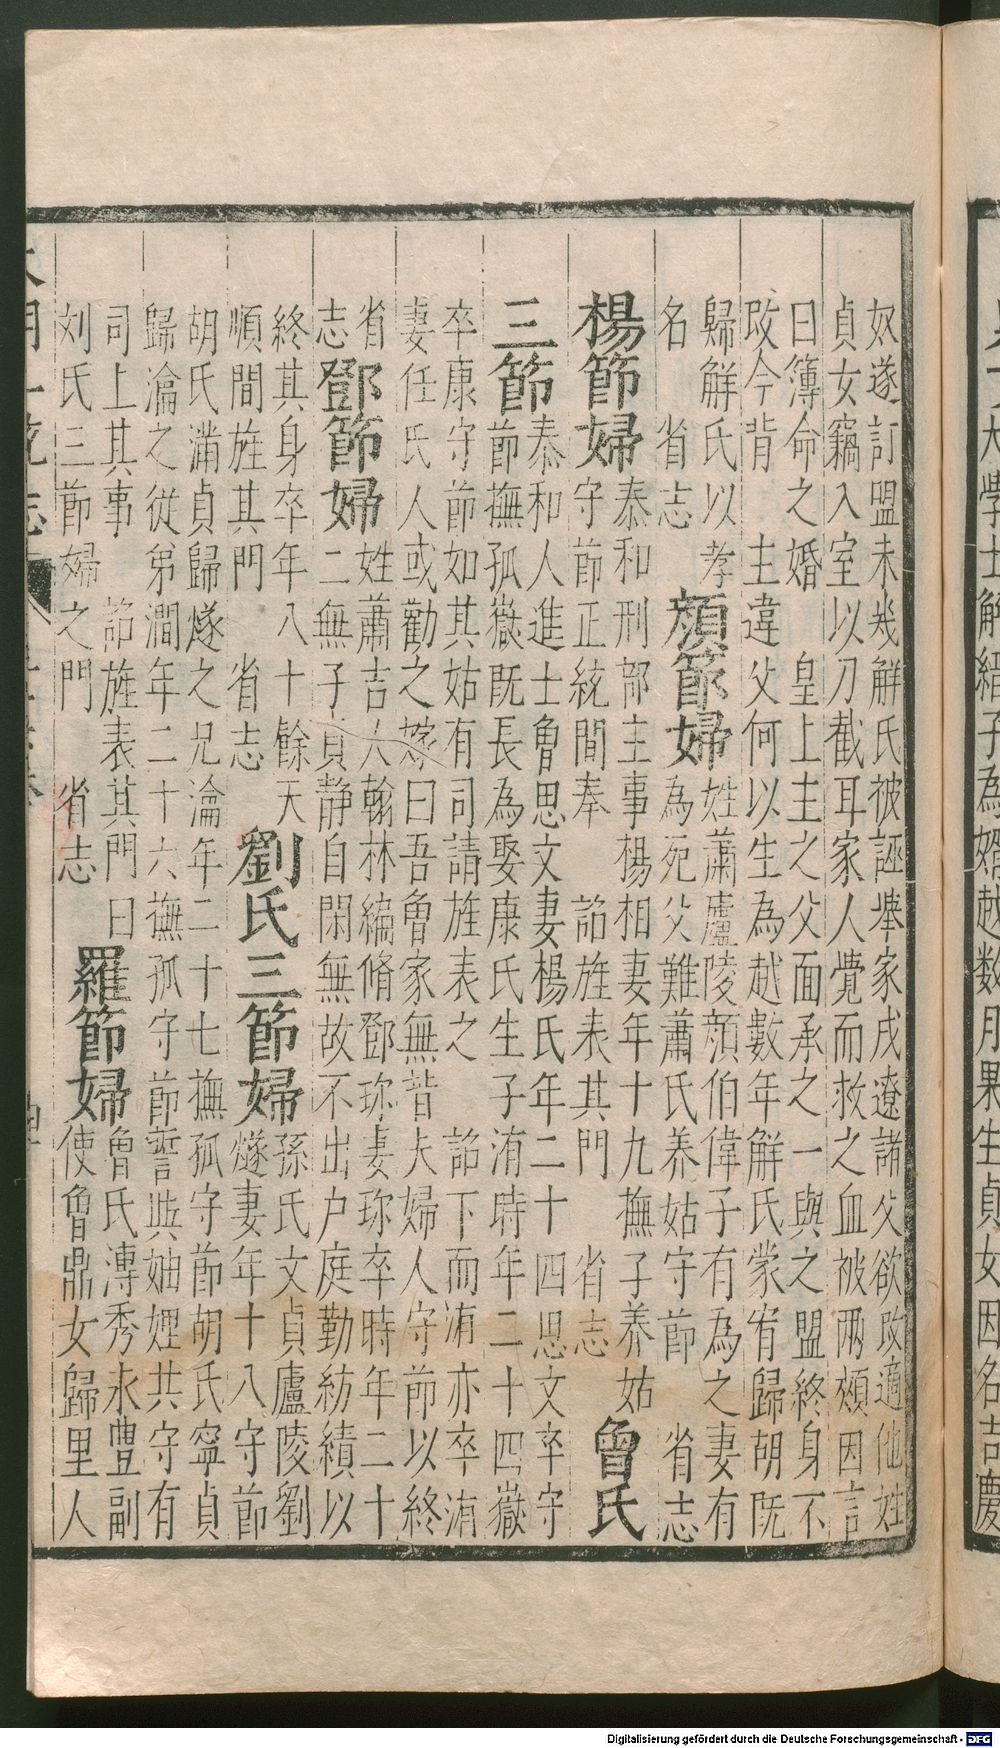 大學士解縉子為婿越数月果生貞女因名吉慶
奴遂訂盟未㡬解氏被誣舉家戍遼諸父欲改適他姓
貞女竊入室以刀截耳家人覺而救之血被兩頰因言
曰簿命之婚 皇上主之父面承之一與之盟終身不
改今背 主違父何以生為越數年解氏蒙宥歸胡旣
歸解氏以孝
名 省志
顔節婦
姓蕭廬陵顔伯偉子有為之妻有
為死父難蕭氏养姑守節 省志
楊節婦
泰和刑部主事楊相妻年十九撫子养姑
守節正統間奉 詔旌表其門 省志
曾氏
三節
泰和人進士魯思文妻楊氏年二十四思文卒守
節撫孤嶽旣長為娶康氏生子洧時年二十四嶽
卒康守節如其姑有司請旌表之 詔下而洧亦卒洧
妻任氏人或勸之嫁曰吾魯家無背夫婦人守節以終
省
志
鄧節婦
姓蕭吉人翰林編脩鄧珎妻珎卒時年二十
二無子貞静自閑無故不出户庭勤紡績以
終其身卒年八十餘天
順間旌其門 省志
劉氏三節婦
孫氏文貞廬陵劉
燧妻年十八守節
胡氏淸貞歸燧之兄瀹年二十七撫孤守節胡氏寧貞
歸瀹之從弟澗年二十六撫孤守節誓與妯娌共守有
司上其事 詔旌表其門曰
刘氏三節婦之門 省志
羅節婦
魯氏漙秀永豊副
使魯鼎女歸里人